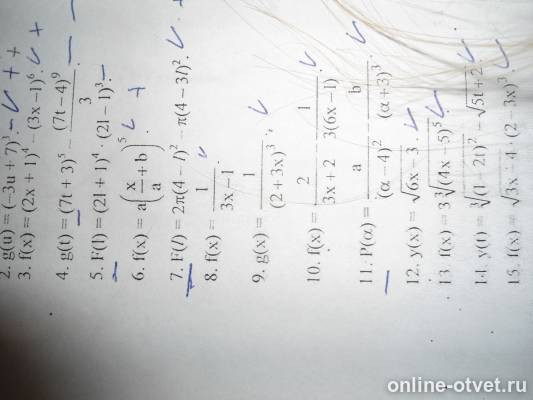 2. g(u) = (−3u + 7)
3. f(x) = (2x + 1)⁴ − (3x − 1)⁶.
4. g(t) = (7t + 3)⁵ − (7t − 4)⁹ / 3
5. F(l) = (2l + 1)⁴ · (2l − 1)³.
6. f(x) = a(x/a + b)⁵.
7. F(l) = 2π(4 − l)² − π(4 − 3l)².
8. f(x) = 1 / (3x − 1).
9. g(x) = 1 / (2 + 3x)³.
10. f(x) = 2 / (3x + 2) − 1 / 3(6x − 1).
11. P(α) = a / (α − 4)² − b / (α + 3)³.
12. y(x) = √(6x − 3).
13. f(x) = 3∛(4x − 5)⁵.
14. y(t) = √(1 − 2t)² − √(5t + 2).
15. f(x) = √(3x − 4) · (2 − 3x)³.
online-otvet.ru